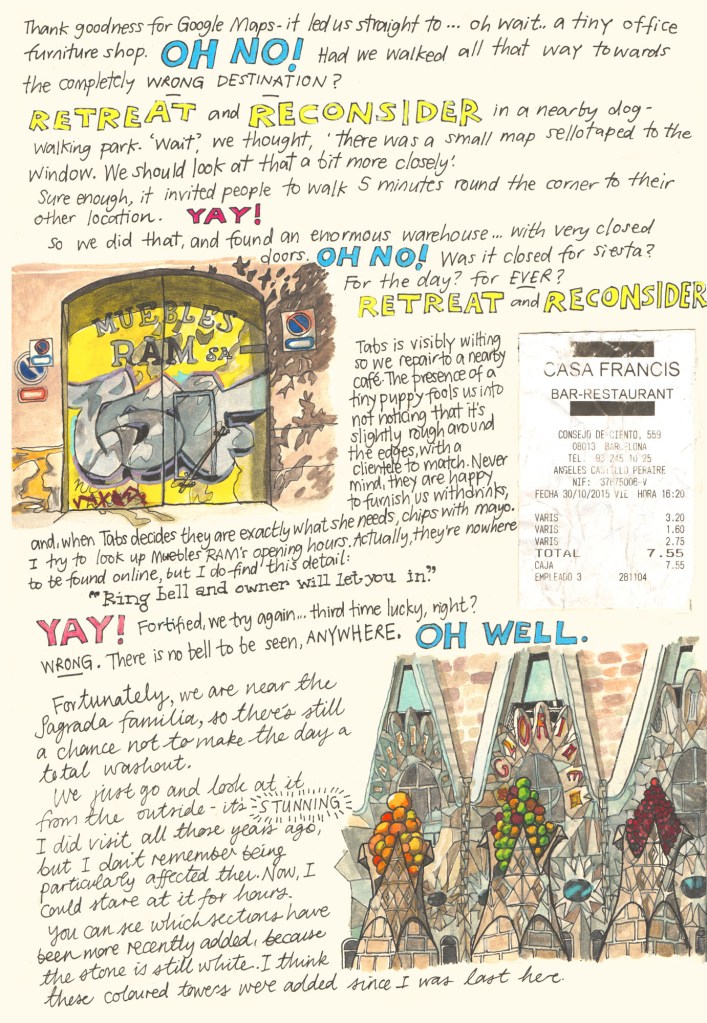 Thank goodness for Google Maps - it led us straight to... oh wait.. a tiny office
furniture shop. OH NO! Had we walked all that way towards
the completely WRONG DESTINATION?
RETREAT and RECONSIDER in a nearby dog-
walking park. 'Wait', we thought, 'There was a small map sellotaped to the
window. We should look at that a bit more closely'.
Sure enough, it invited people to walk 5 minutes round the corner to their
other location. YAY!
So we did that, and found an enormous warehouse... with very closed
doors. OH NO! Was it closed for siesta?
For the day? for EVER?
RETREAT and RECONSIDER
MUEBLES
RAM SA
Tabs is visibly wilting
so we repair to a nearby
café. The presence of a
tiny puppy fools us into
not noticing that it's
slightly rough around
the edges, with a
clientele to match. Never
mind, they are happy
to furnish us with drinks,
and, when Tabs decides they are exactly what she needs, chips with mayo.
I try to look up Muebles RAM's opening hours. Actually, they're nowhere
to be found online, but I do find this detail:
"Ring bell and owner will let you in."
CASA FRANCIS
BAR-RESTAURANT
CONSEJO DE CIENTO, 559
08013 BARCELONA
TEL. 93 245 10 25
ANGELES CASTILLO PERAIRE
NIF: 37675006-V
FECHA 30/10/2015 VIE HORA 16:20
VARIS 3.20
VARIS 1.60
VARIS 2.75
TOTAL 7.55
CAJA 7.55
EMPLEADO 3 281104
YAY! Fortified, we try again... third time lucky, right?
WRONG. There is no bell to be seen, ANYWHERE. OH WELL.
Fortunately, we are near the
Sagrada familia, so there's still
a chance not to make the day a
total washout.
We just go and look at it
from the outside - it's STUNNING
I did visit all those years ago,
but I don't remember being
particularly affected then. Now, I
could stare at it for hours.
You can see which sections have
been more recently added, because
the stone is still white. I think
these coloured towers were added since I was last here.
GLORIA